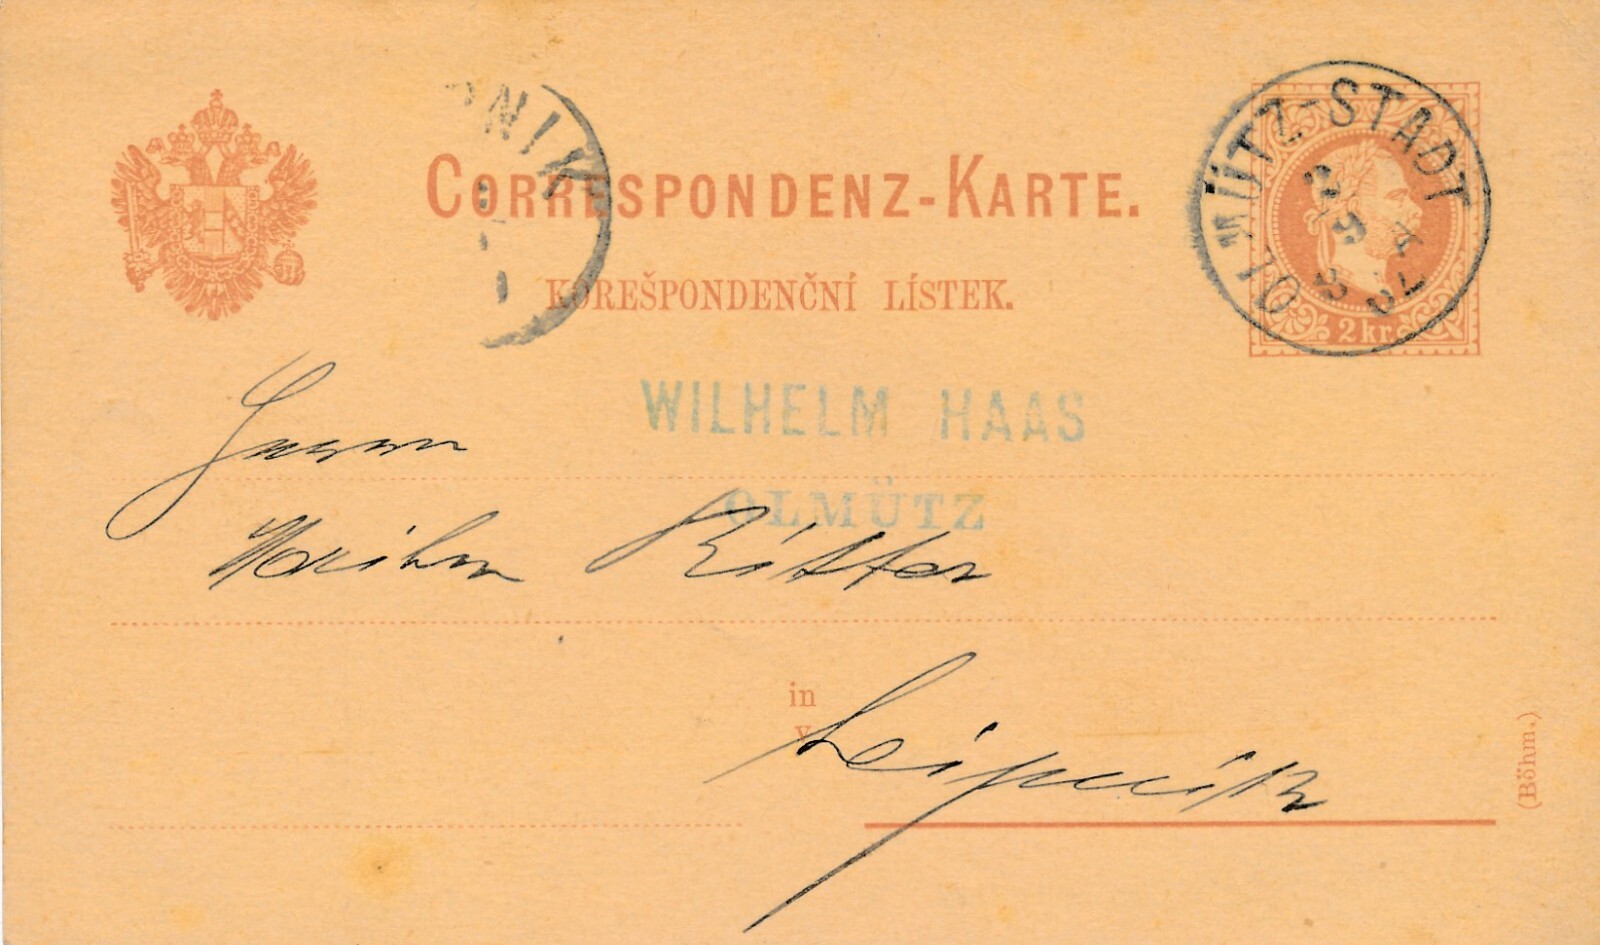 CORRESPONDENZ-KARTE.
KOREŠPONDENČNÍ LÍSTEK.
NIK
OLMÜTZ-STADT
2 kr.
WILHELM HAAS
OLMÜTZ
Herrn
Ritter
in
v
Leipnik
(Böhm.)